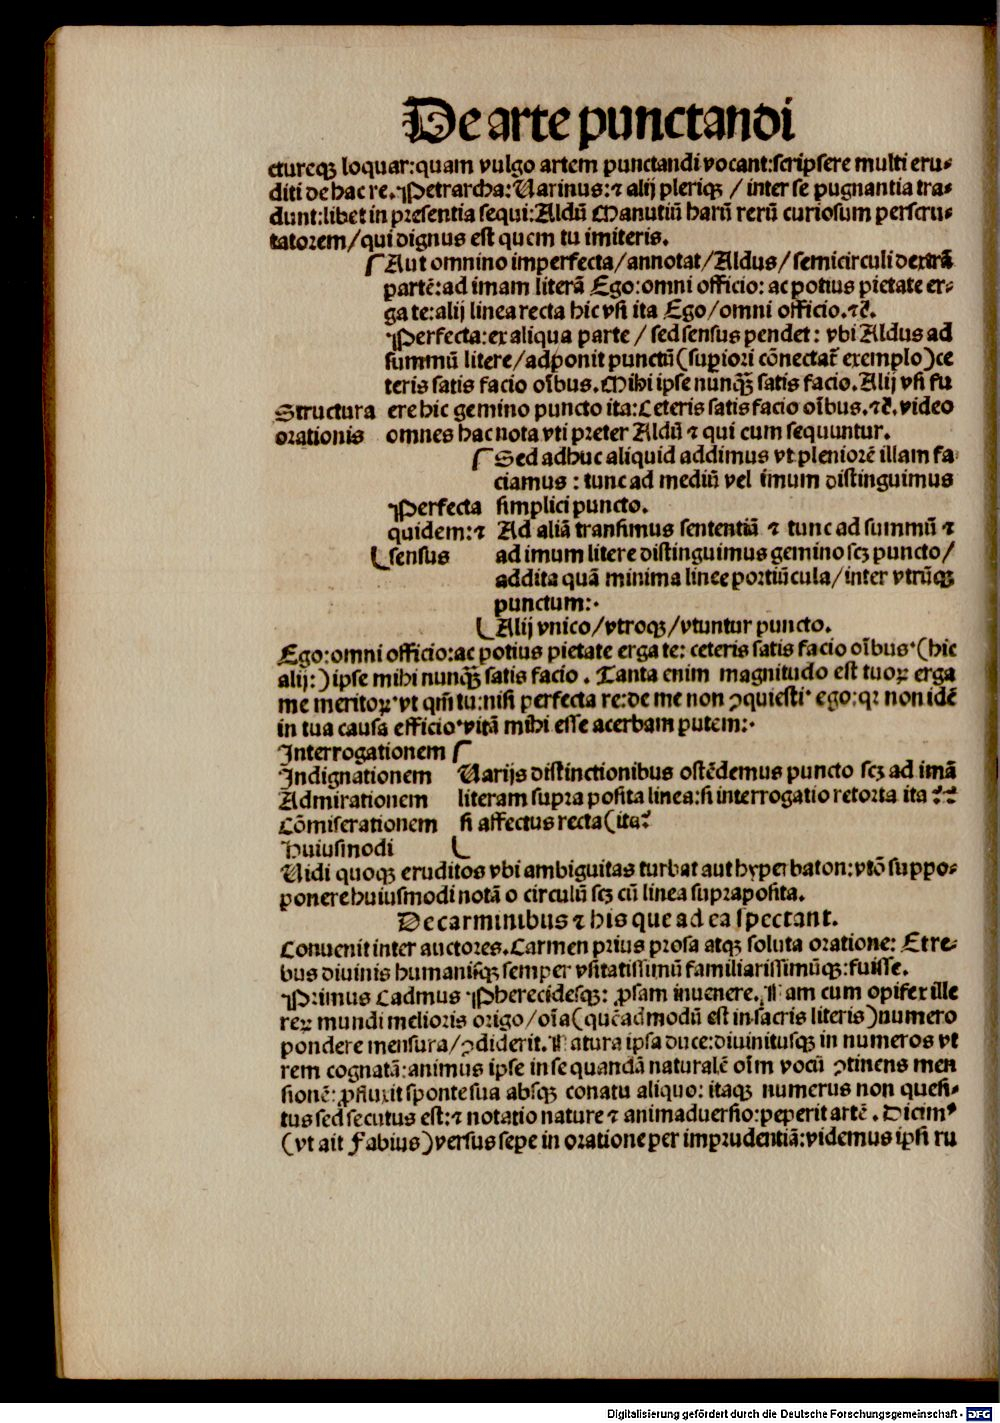 De arte punctandi
ctureqꝫ loquar:quam vulgo artem punctandi vocant:scripsere multi eru-
diti de hac re. Petrarcha:Uarinus:⁊ alij pleriqꝫ / inter se pugnantia tra-
dunt:libet in presentia sequi:Aldū Manutiū harū rerū curiosum perscru-
tatorem/qui dignus est quem tu imiteris.
Aut omnino imperfecta/annotat/Aldus/semicirculi dextrā
partē:ad imam literā Ego:omni officio: ac potius pietate er-
ga te:alij linea recta hic vsi ita Ego/omni officio.⁊c̄.
Perfecta:ex aliqua parte / sed sensus pendet: vbi Aldus ad
summū litere/adponit punctū(supiori cōnectat̄ exemplo)ce
teris satis facio oībus. Mihi ipse nunqꝫ̄ satis facio. Alij vsi fu
Structura ere hic gemino puncto ita:Ceteris satis facio oībus.⁊c̄. video
orationis omnes hac nota vti preter Aldū ⁊ qui cum sequuntur.
Sed adhuc aliquid addimus vt pleniorē illam fa
ciamus : tunc ad mediū vel īmum distinguimus
Perfecta simplici puncto.
quidem:⁊ Ad aliā transimus sententiā ⁊ tunc ad summū ⁊
sensus ad imum litere distinguimus gemino scꝫ puncto/
addita quā minima linee portiūcula/inter vtrūqꝫ
punctum:·
Alij vnico/vtroqꝫ/vtuntur puncto.
Ego:omni officio:ac potius pietate erga te: ceteris satis facio oībus·(hic
alij:)ipse mihi nunqꝫ̄ satis facio . Tanta enim magnitudo est tuoꝝ erga
me meritoꝝ·vt qm̄ tu:nisi perfecta re:de me non ꝯquiesti· ego:qꝛ non idē
in tua causa efficio·vitā mihi esse acerbam putem:·
Interrogationem
Indignationem Uarijs distinctionibus ostēdemus puncto scꝫ ad imā
Admirationem literam supra posita linea:si interrogatio retorta ita
Cōmiserationem si affectus recta(ita
huiusmodi
Uidi quoqꝫ eruditos vbi ambiguitas turbat aut hyperbaton:vtō suppo-
ponere huiusmodi notā o circulū scꝫ cū linea supraposita.
De carminibus ⁊ his que ad ea spectant.
Conuenit inter auctores.Carmen prius prosa atqꝫ soluta oratione: Et re-
bus diuinis humanisqꝫ semper vsitatissimū familiarissimūqꝫ:fuisse.
Primus Cadmus Pherecidesqꝫ: ꝓsam inuenere. Nam cum opifex ille
reꝝ mundi melioris origo/oīa(quēadmodū est in sacris literis)numero
pondere mensura/ꝯdiderit. Natura ipsa duce:diuinitusqꝫ in numeros vt
rem cognatā:animus ipse in se quandā naturalē oīm vocū ꝯtinens men
sionē: ꝓfluxit sponte sua absqꝫ conatu aliquo: itaqꝫ numerus non quesi-
tus sed secutus est:⁊ notatio nature ⁊ animaduersio:peperit artē . Dicimꝰ
(vt ait Fabius)versus sepe in oratione per imprudentiā:videmus ipsi ru
Digitalisierung gefördert durch die Deutsche Forschungsgemeinschaft - DFG